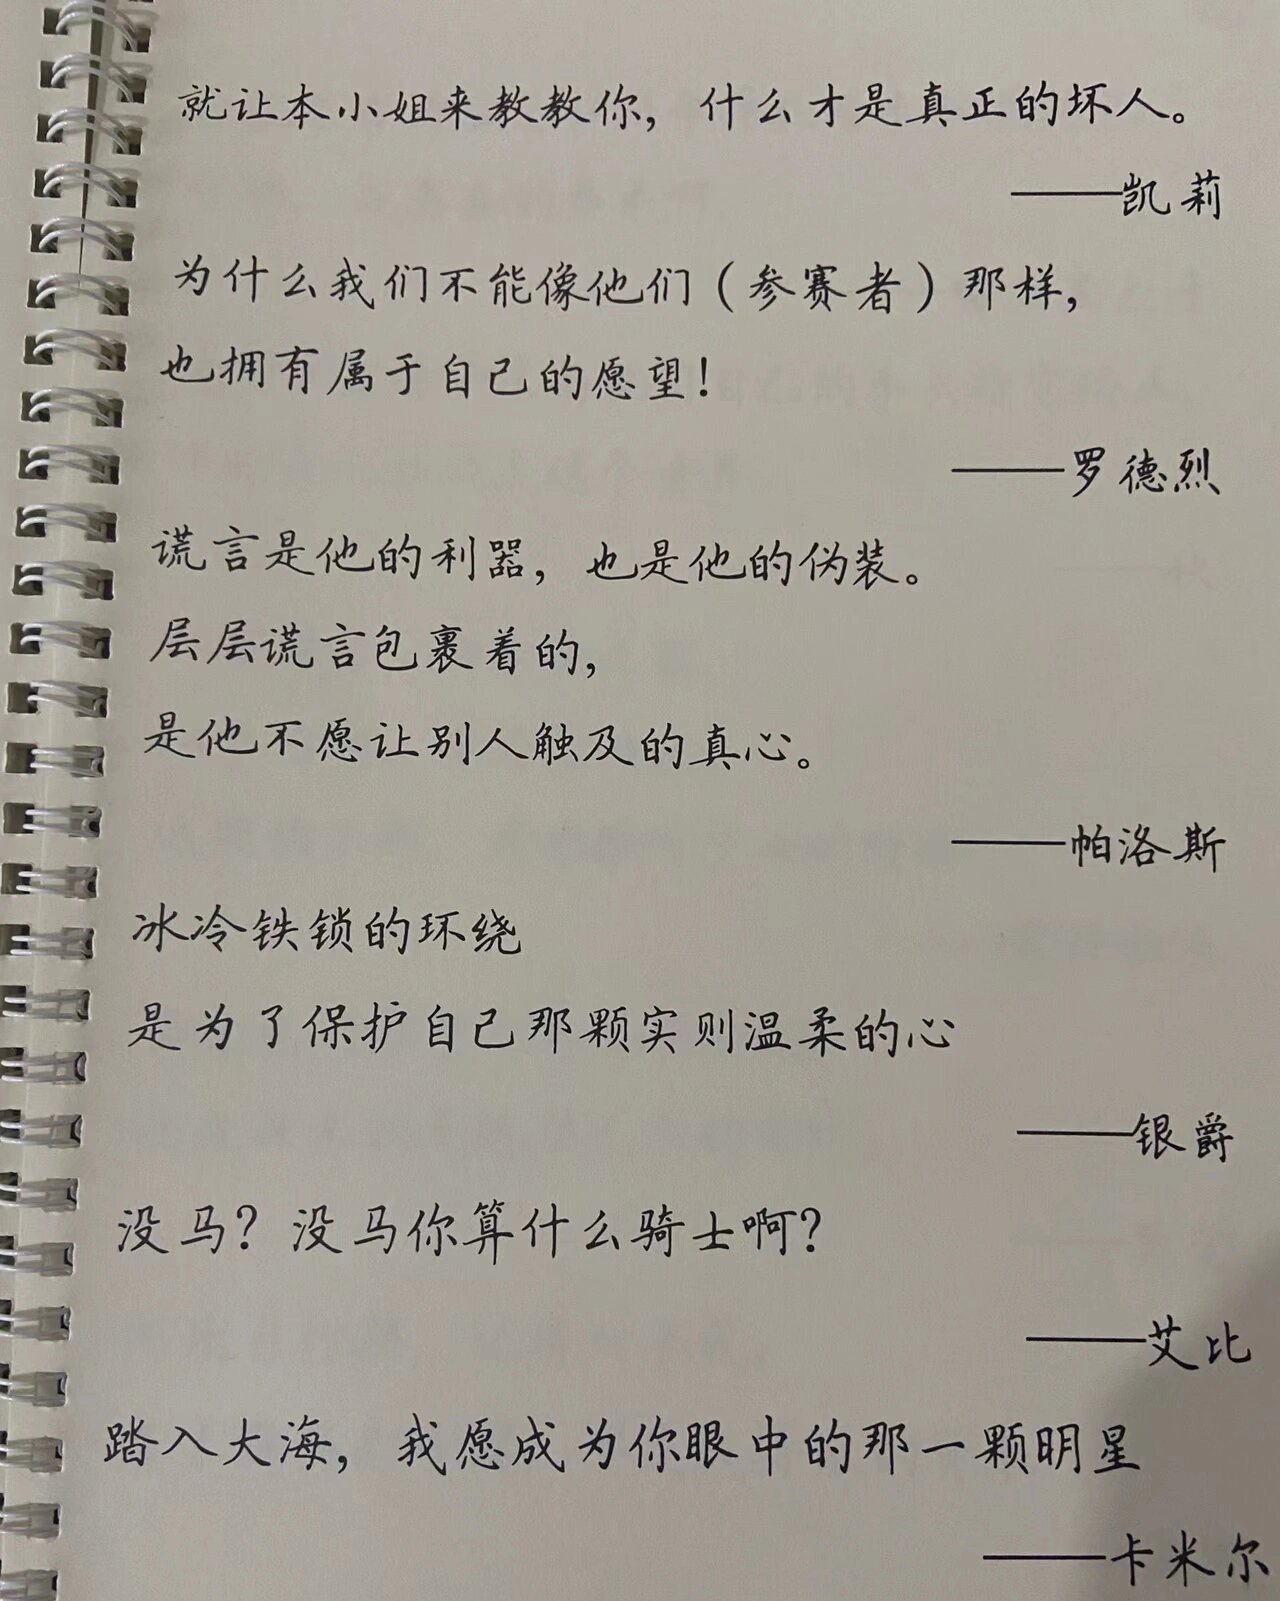 就让本小姐来教教你，什么才是真正的坏人。
——凯莉
为什么我们不能像他们（参赛者）那样，
也拥有属于自己的愿望！
——罗德烈
谎言是他的利器，也是他的伪装。
层层谎言包裹着的，
是他不愿让别人触及的真心。
——帕洛斯
冰冷铁锁的环绕
是为了保护自己那颗实则温柔的心
——银爵
没马？没马你算什么骑士啊？
——艾比
踏入大海，我愿成为你眼中的那一颗明星
——卡米尔